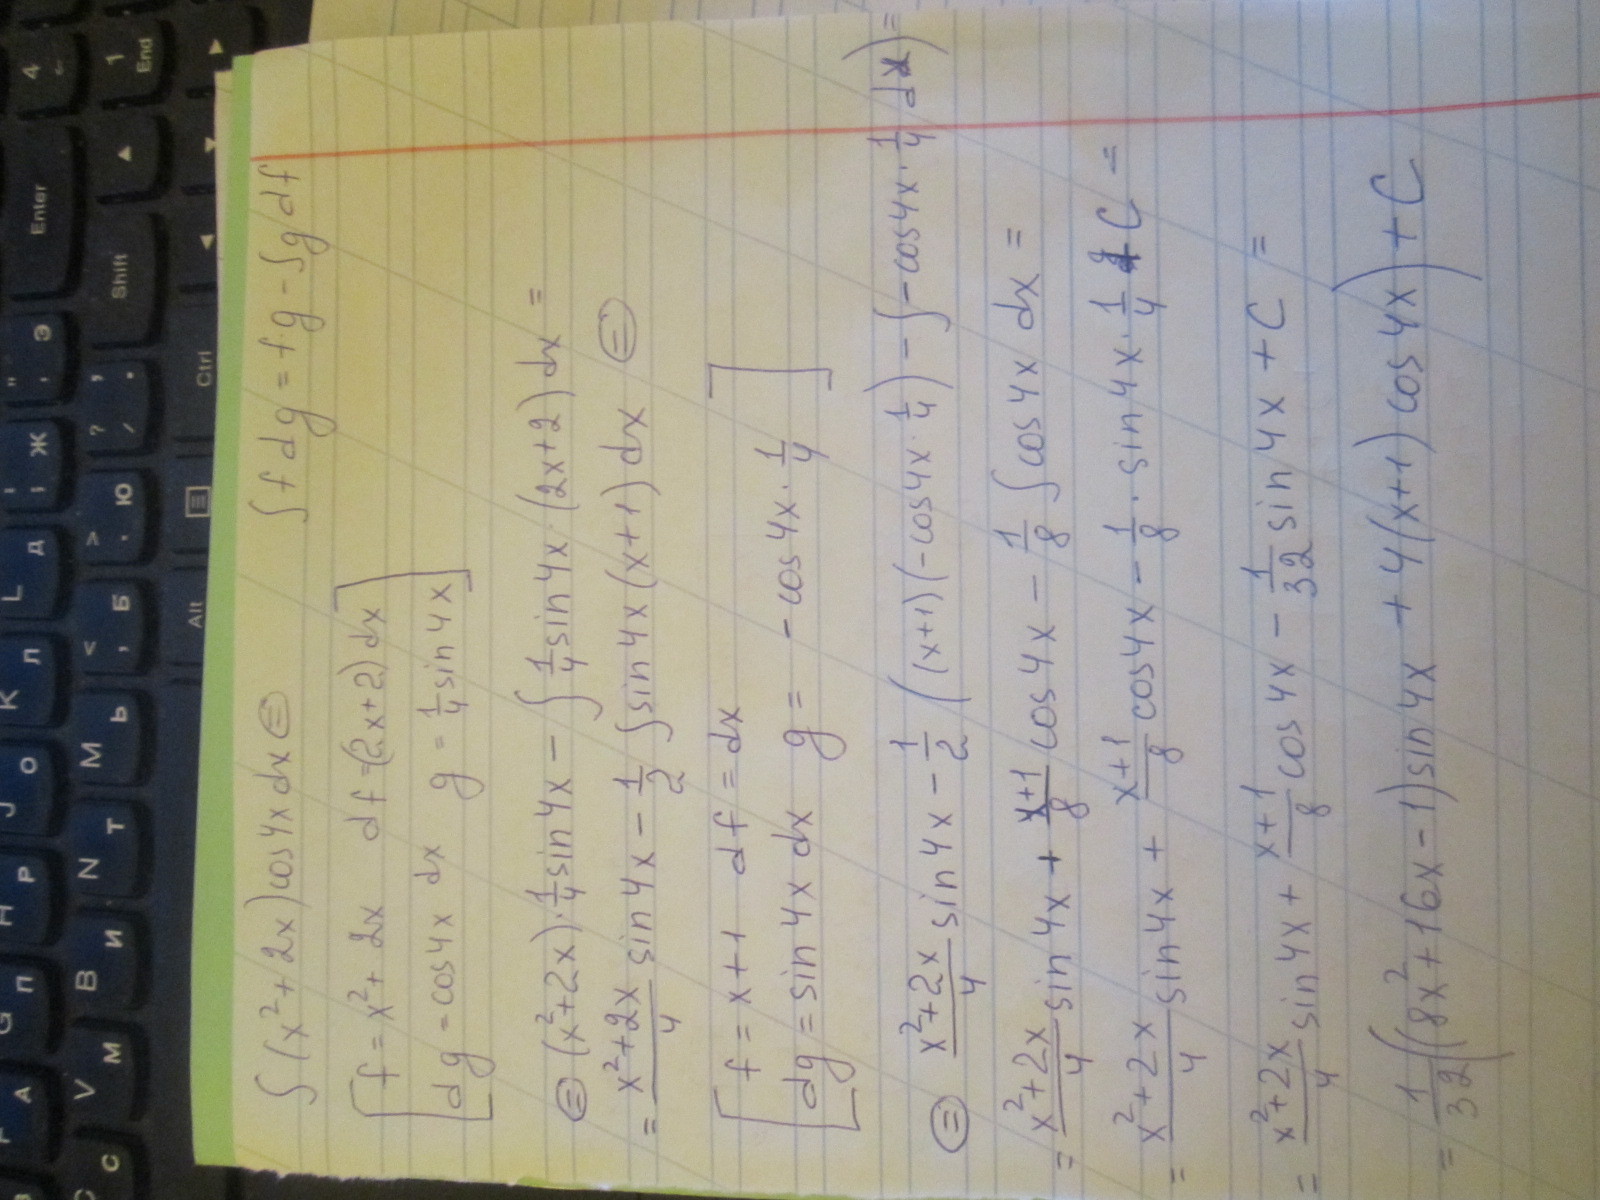 ∫(x²+2x)cos4x dx ⊜ ∫f dg = fg - ∫g df
[f = x²+2x df=(2x+2)dx
dg = cos4x dx g = 1/4 sin4x]
⊜ (x²+2x)·1/4 sin4x - ∫1/4 sin4x·(2x+2)dx =
= (x²+2x)/4 sin4x - 1/2 ∫sin4x(x+1)dx ⊜
[f = x+1 df = dx
dg = sin4x dx g = -cos4x·1/4]
⊜ (x²+2x)/4 sin4x - 1/2((x+1)(-cos4x·1/4) - ∫-cos4x·1/4 dx) =
= (x²+2x)/4 sin4x + (x+1)/8 cos4x - 1/8 ∫cos4x dx =
= (x²+2x)/4 sin4x + (x+1)/8 cos4x - 1/8 · sin4x·1/4 + C =
= (x²+2x)/4 sin4x + (x+1)/8 cos4x - 1/32 sin4x + C =
= 1/32((8x²+16x-1)sin4x + 4(x+1)cos4x) + C
4
1 End
Enter
Shift
Ctrl
Alt
" ' Э
: ; Ж
L Д
K Л
J О
H Р
G П
F А
? / .
> . Ю
< , Б
M Ь
N Т
B И
V М
C С